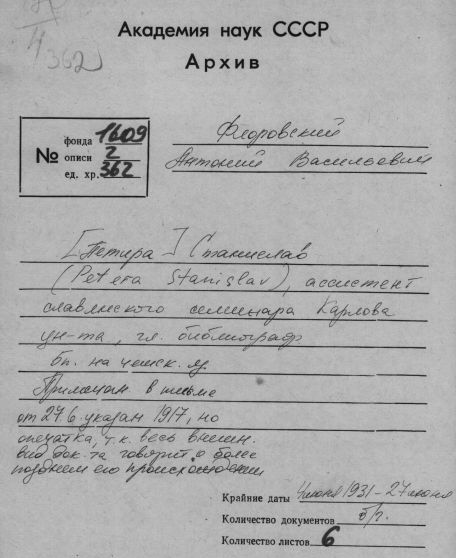 4
362
Академия наук СССР
Архив
№
фонда 1609
описи 2
ед. хр. 362
Флоровский
Антоний Васильевич
[Петира] Станислав
(Petera Stanislav), ассистент
славянского семинара Карлова
ун-та, гл. библиограф
на чешск. яз.
Примечан. в письме
от 27 6. указан 1917, но
опечатка, т.к. весь внешн.
вид док-та говорит о более
позднем его происхождении
Крайние даты 4 июня 1931 - 27 июня
Количество документов б/г.
Количество листов 6